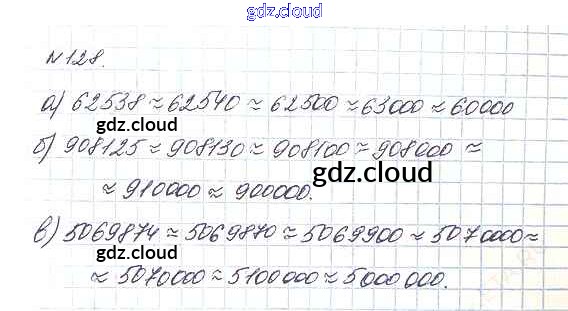 gdz.cloud
№128.
а) 62538 ≈ 62540 ≈ 62500 ≈ 63000 ≈ 60000
gdz.cloud
б) 908125 ≈ 908130 ≈ 908100 ≈ 908000 ≈
gdz.cloud
≈ 910000 ≈ 900000.
gdz.cloud
в) 5069874 ≈ 5069870 ≈ 5069900 ≈ 5070000 ≈
≈ 5070000 ≈ 5100000 ≈ 5000000.